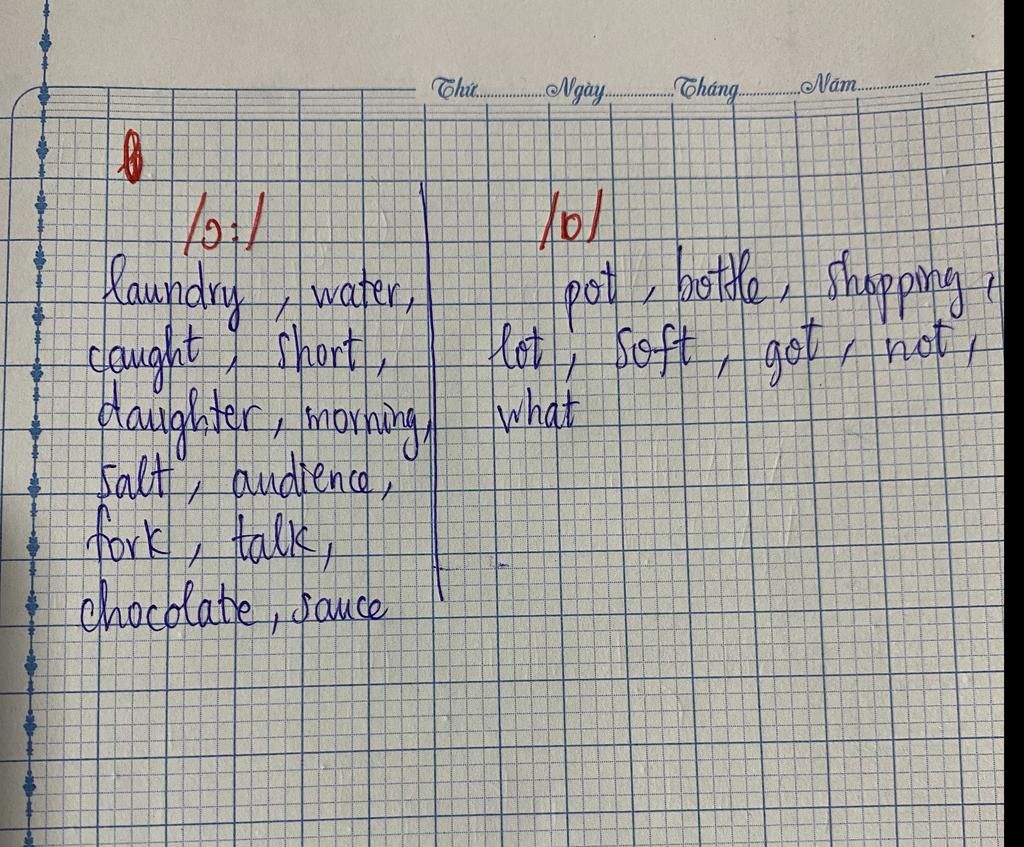 Thứ............ Ngày............ Tháng............ Năm............
/ɔ:/ /ɒ/
laundry, water, pot, bottle, shopping,
caught, short, lot, soft, got, not,
daughter, morning, what
salt, audience,
fork, talk,
chocolate, sauce